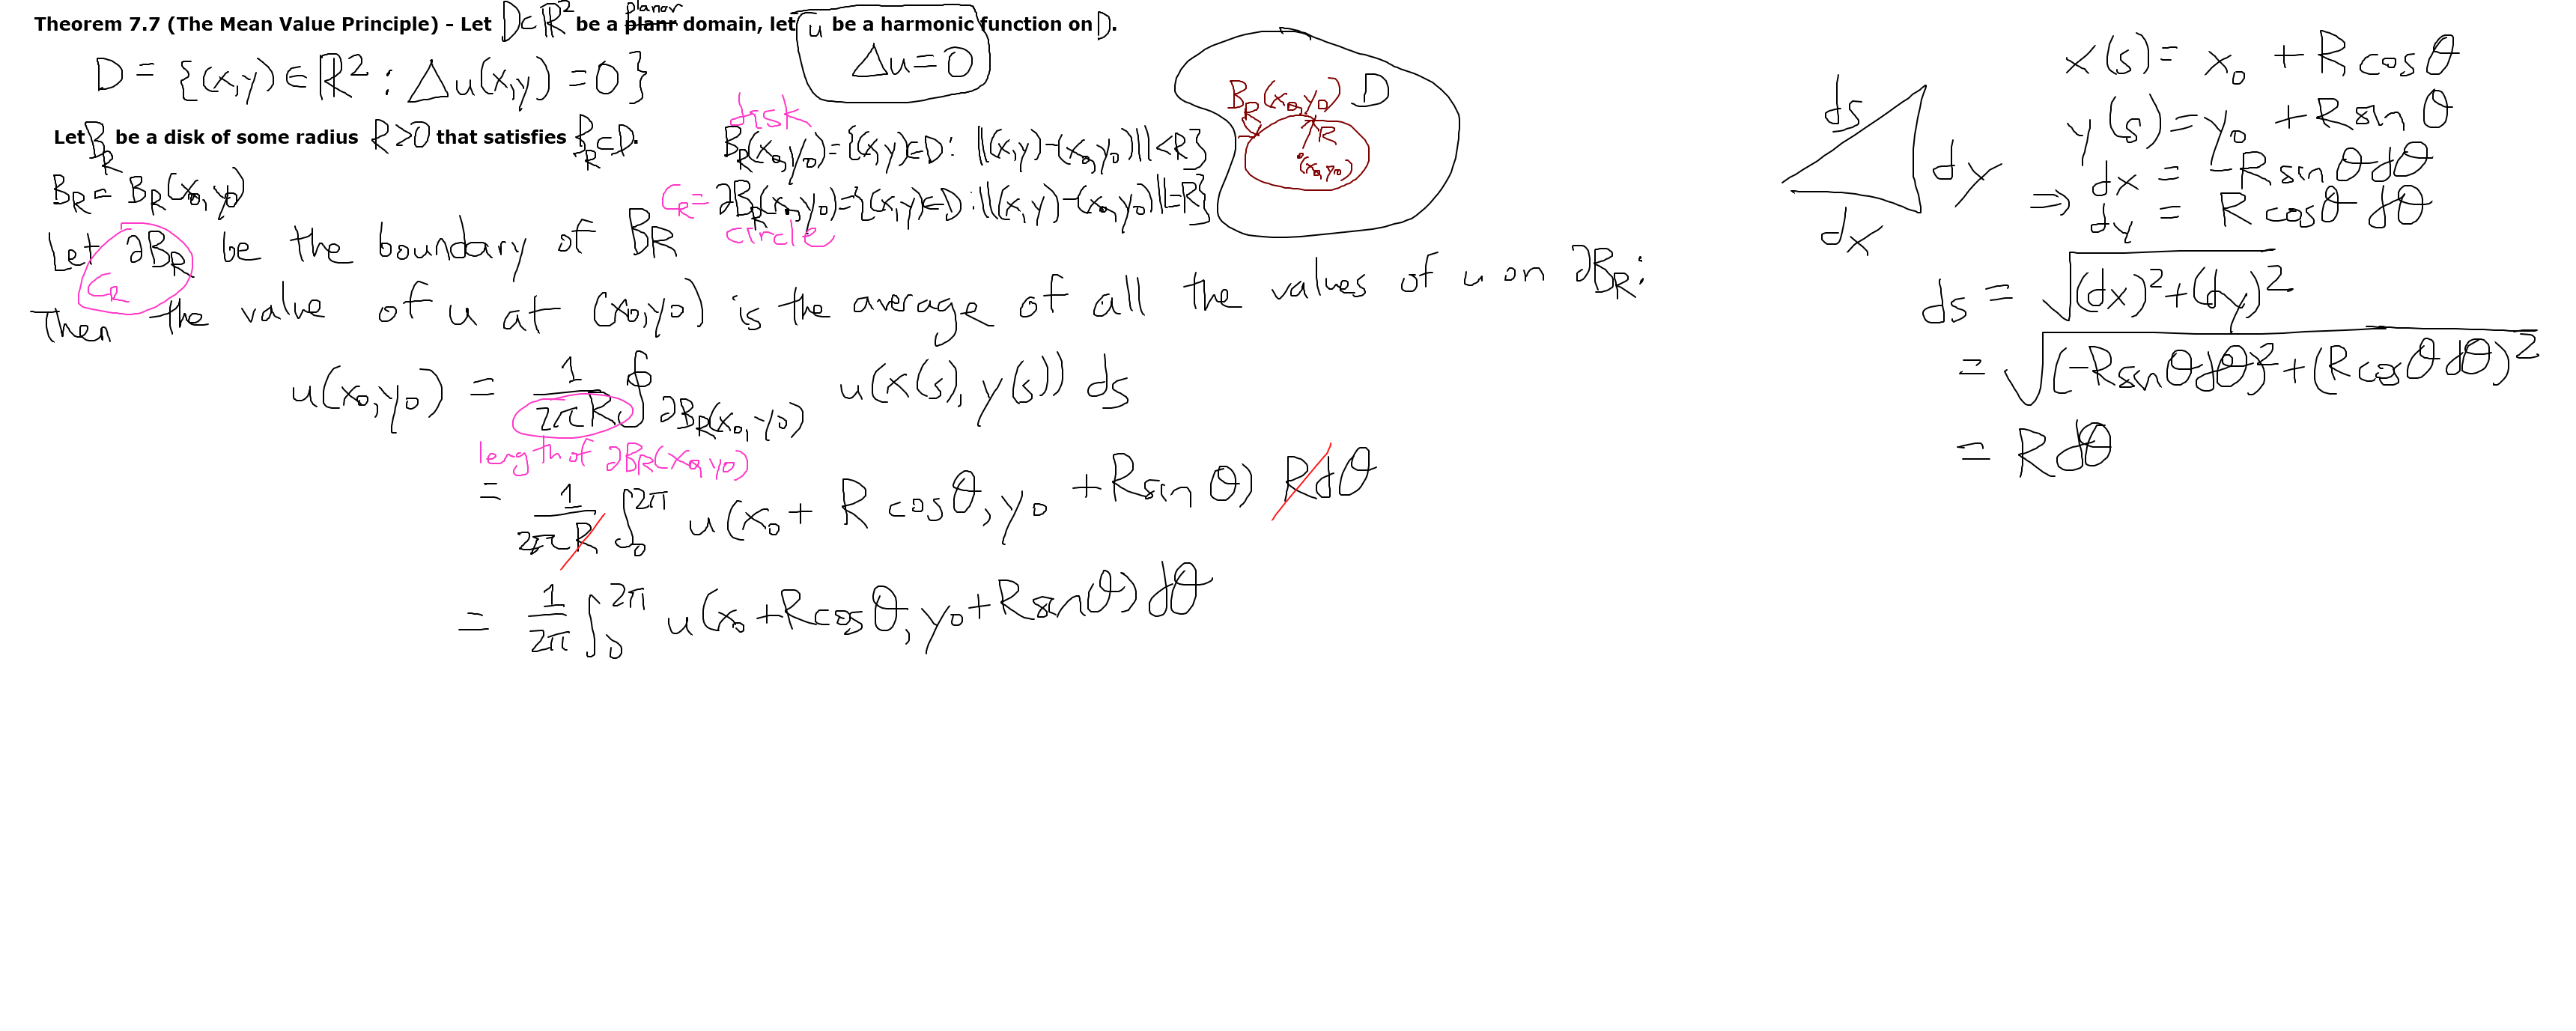 Theorem 7.7 (The Mean Value Principle) - Let D⊂ℝ² be a planr planar domain, let u be a harmonic function on D.
D = {(x,y)∈ℝ² : Δu(x,y) = 0}
Δu = 0
Let B_R be a disk of some radius R>0 that satisfies B_R⊂D.
disk
B_R(x₀,y₀) = {(x,y)∈D : ||(x,y)-(x₀,y₀)|| < R}
B_R = B_R(x₀,y₀)
C_R = ∂B_R(x₀,y₀) = {(x,y)∈D : ||(x,y)-(x₀,y₀)|| = R}
circle
B_R(x₀,y₀) D
R
(x₀,y₀)
Let ∂B_R be the boundary of B_R
C_R
Then the value of u at (x₀,y₀) is the average of all the values of u on ∂B_R:
u(x₀,y₀) = 1/(2πR) ∮_{∂B_R(x₀,y₀)} u(x(s), y(s)) ds
length of ∂B_R(x₀,y₀)
= 1/(2πR) ∫₀^{2π} u(x₀ + R cosθ, y₀ + R sin θ) R dθ
= 1/(2π) ∫₀^{2π} u(x₀ + R cosθ, y₀ + R sinθ) dθ
ds
dy
dx
x(s) = x₀ + R cos θ
y(s) = y₀ + R sin θ
⇒ dx = -R sin θ dθ
dy = R cosθ dθ
ds = √((dx)² + (dy)²)
= √((-R sin θ dθ)² + (R cos θ dθ)²)
= R dθ